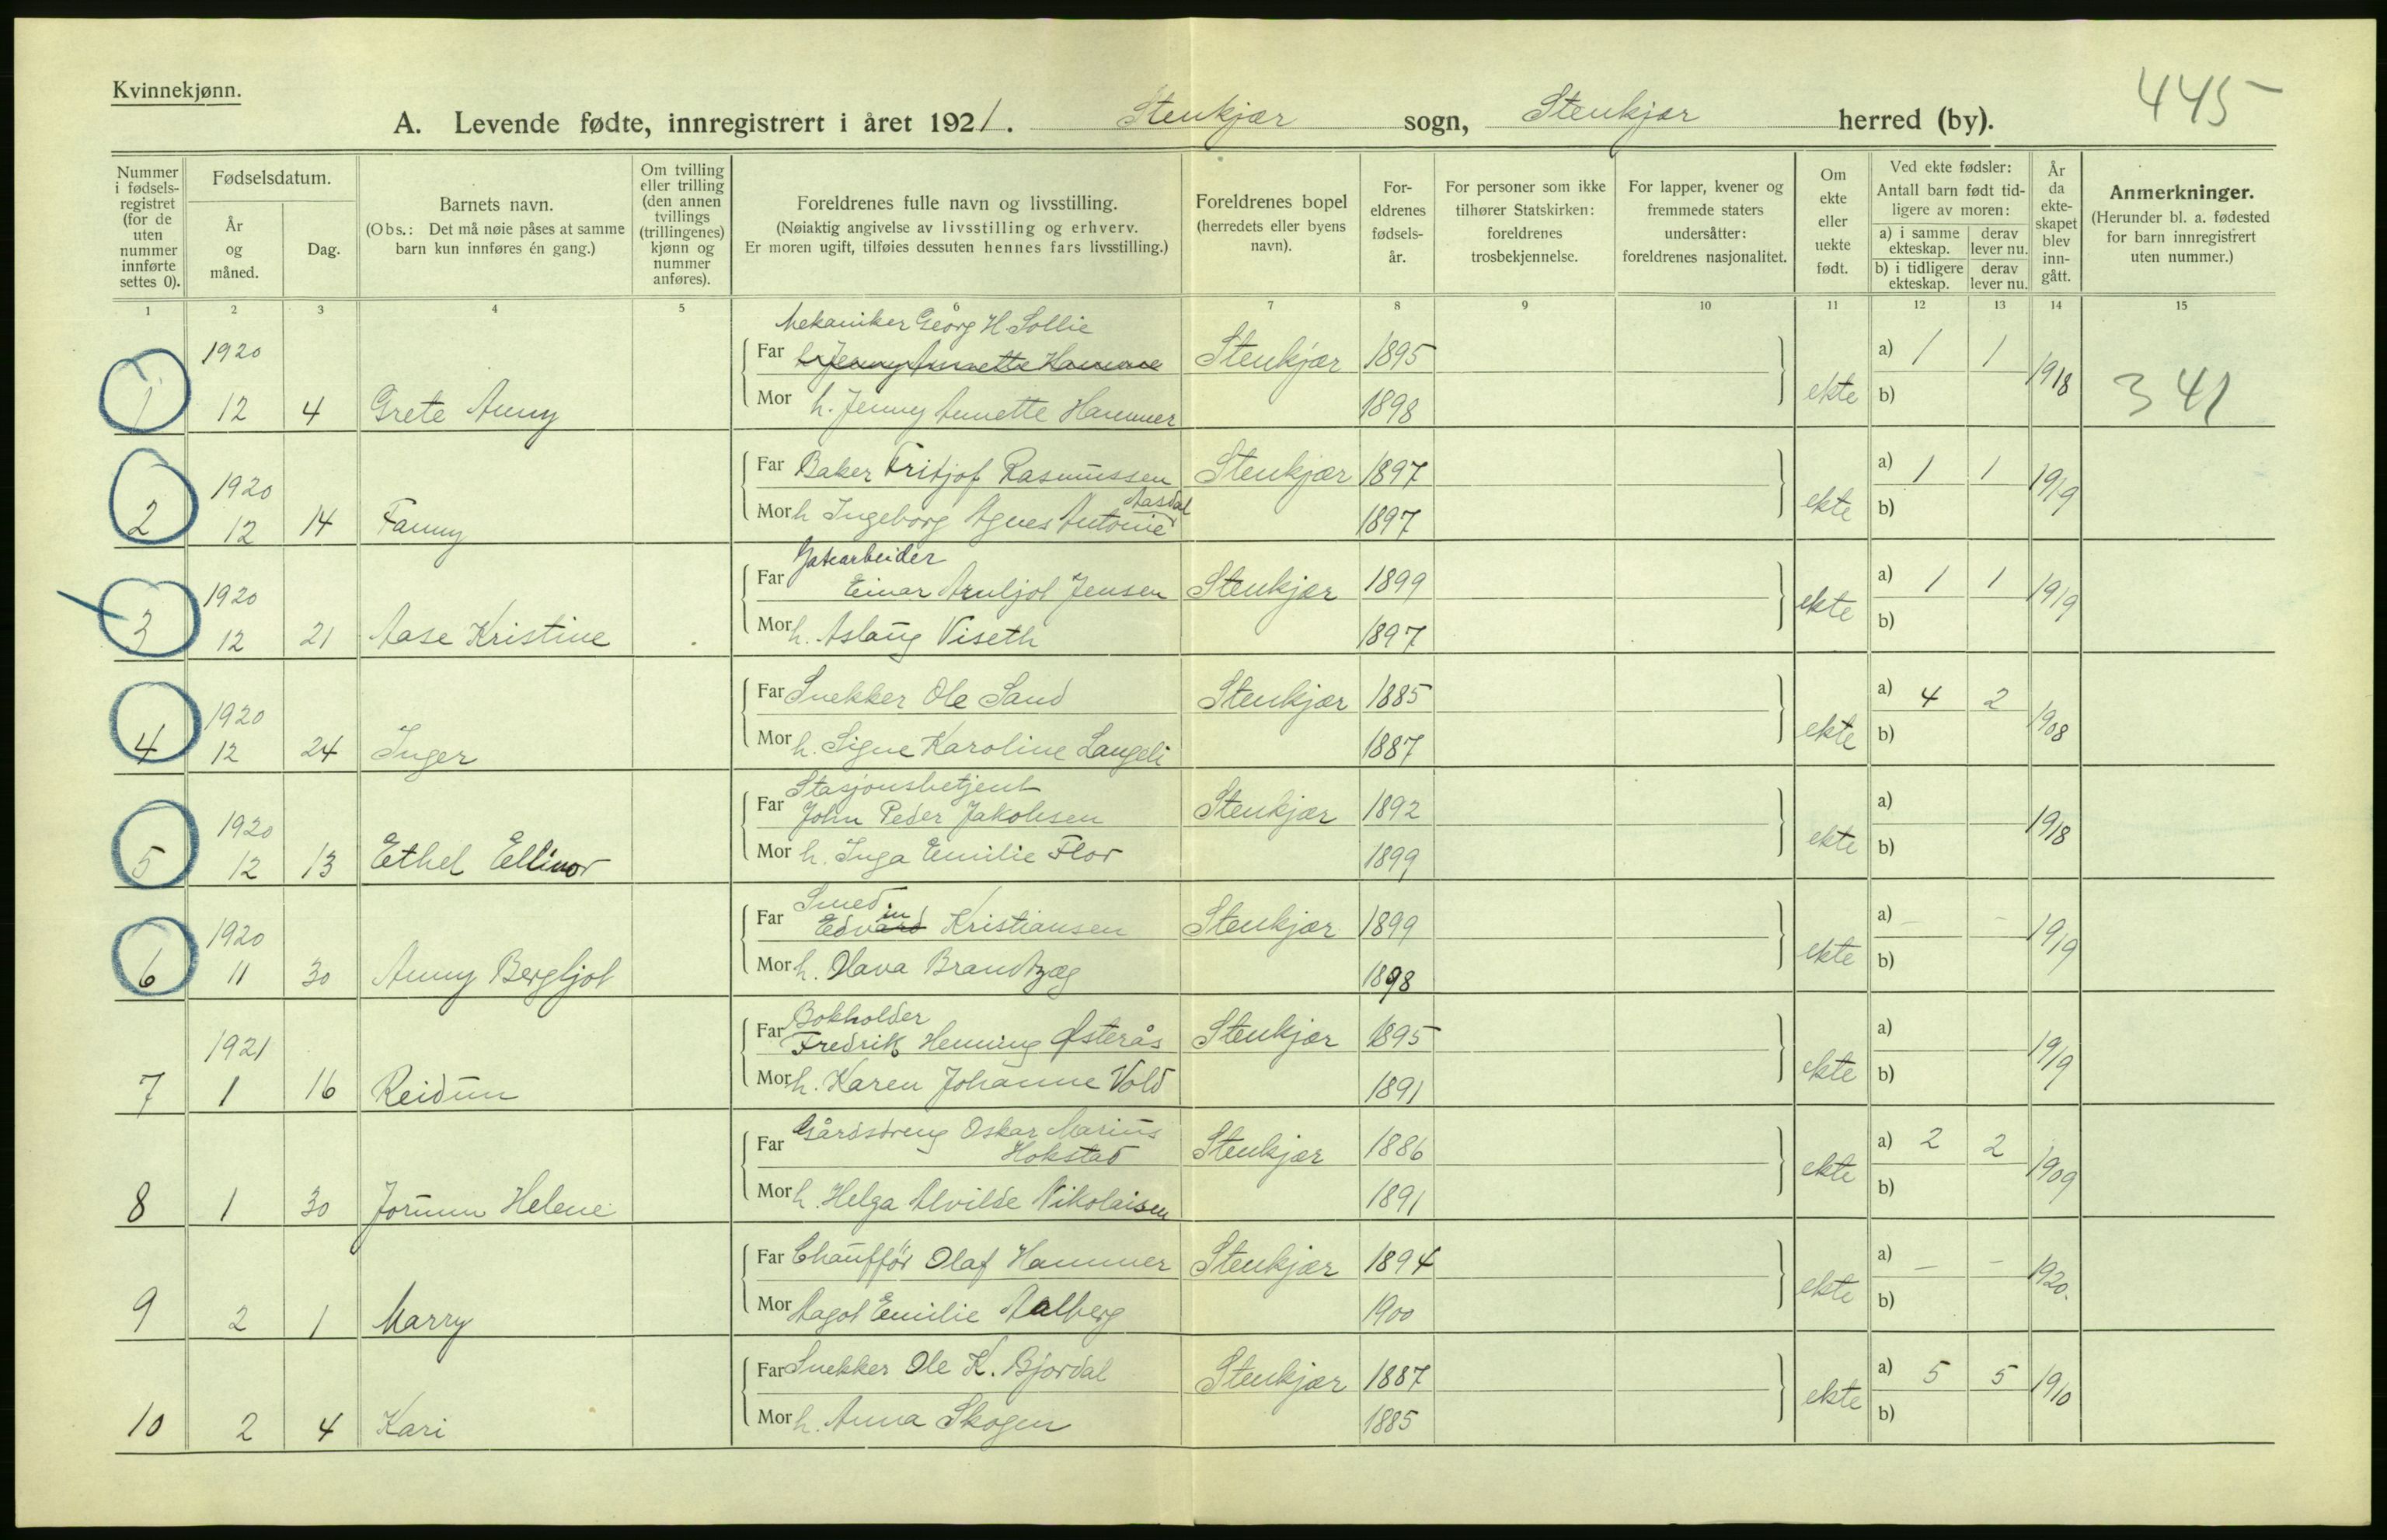 Kvinnekjønn.
445
A. Levende fødte, innregistrert i året 1921. Stenkjær sogn, Stenkjær herred (by).
Nummer i fødselsregistret (for de uten nummer innførte settes 0).
Fødselsdatum.
År og måned.
Dag.
Barnets navn.
(Obs.: Det må nøie påses at samme barn kun innføres én gang.)
Om tvilling eller trilling (den annen tvillings (trillingenes) kjønn og nummer anføres).
Foreldrenes fulle navn og livsstilling.
(Nøiaktig angivelse av livsstilling og erhverv.
Er moren ugift, tilføies dessuten hennes fars livsstilling.)
Foreldrenes bopel
(herredets eller byens navn).
Foreldrenes fødselsår.
For personer som ikke tilhører Statskirken: foreldrenes trosbekjennelse.
For lapper, kvener og fremmede staters undersåtter: foreldrenes nasjonalitet.
Om ekte eller uekte født.
Ved ekte fødsler:
Antall barn født tidligere av moren:
a) i samme ekteskap. derav lever nu.
b) i tidligere ekteskap. derav lever nu.
År da ekteskapet blev inngått.
Anmerkninger.
(Herunder bl. a. fødested for barn innregistrert uten nummer.)
1 2 3 4 5 6 7 8 9 10 11 12 13 14 15
Mekaniker Georg H Sollie
1920 Far h. Jenny Annette Hammer Stenkjær 1895 a) 1 1 1918
1 12 4 Grete Anny Mor h. Jenny Annette Hammer 1898 ekte b) 341
1920 Far Baker Fritjof Rasmussen Stenkjær 1897 a) 1 1 1919
Aasdal
2 12 14 Fanny Mor h Ingeborg Agnes Antonie 1897 ekte b)
Gatearbeider
1920 Far Einar Arnljot Jensen Stenkjær 1899 a) 1 1 1919
3 12 21 Aase Kristine Mor h. Aslaug Viseth 1897 ekte b)
1920 Far Snekker Ole Sand Stenkjær 1885 a) 4 2 1908
4 12 24 Inger Mor h. Signe Karoline Langeli 1887 ekte b)
Stasjonsbetjent
1920 Far John Peder Jakobsen Stenkjær 1892 a) 1918
5 12 13 Ethel Ellinor Mor h. Inga Emilie Flor 1899 ekte b)
Smed in
1920 Far Edvard Kristiansen Stenkjær 1899 a) – – 1919
6 11 30 Anny Bergljot Mor h. Olava Brandtzæg 1898 ekte b)
Bokholder
1921 Far Fredrik Henning Østerås Stenkjær 1895 a) 1919
7 1 16 Reidun Mor h. Karen Johanne Vold 1891 ekte b)
Gårdsdreng Oskar Marius
Far Hokstad Stenkjær 1886 a) 2 2 1909
8 1 30 Jorunn Helene Mor h. Helga Alvilde Nikolaisen 1891 ekte b)
Far Chauffør Olaf Hammer Stenkjær 1894 a) – – 1920.
9 2 1 Marry Mor Aagot Emilie Aalberg 1900 ekte b)
Far Snekker Ole K. Bjordal Stenkjær 1887 a) 5 5 1910
10 2 4 Kari Mor h. Anna Skogen 1885 ekte b)